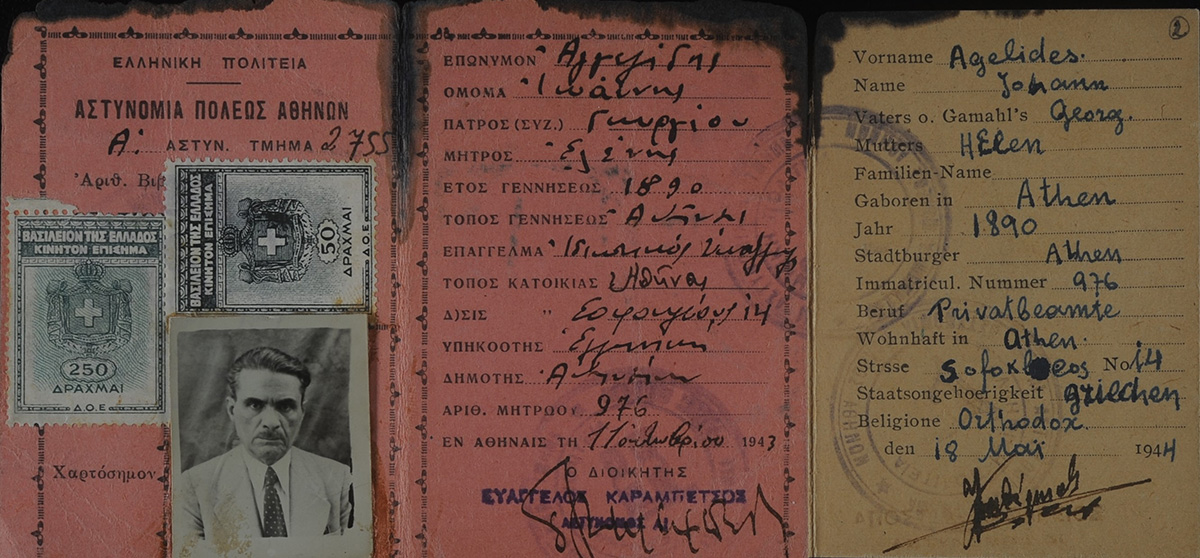 ΕΛΛΗΝΙΚΗ ΠΟΛΙΤΕΙΑ
ΑΣΤΥΝΟΜΙΑ ΠΟΛΕΩΣ ΑΘΗΝΩΝ
Α. ΑΣΤΥΝ. ΤΜΗΜΑ 2755
Ἀριθ. Βιβ
ΒΑΣΙΛΕΙΟΝ ΤΗΣ ΕΛΛΑΔΟΣ
ΚΙΝΗΤΟΝ ΕΠΙΣΗΜΑ
50
ΔΡΑΧΜΑΙ
Δ.Ο.Ε.
ΒΑΣΙΛΕΙΟΝ ΤΗΣ ΕΛΛΑΔΟΣ
ΚΙΝΗΤΟΝ ΕΠΙΣΗΜΑ
250
ΔΡΑΧΜΑΙ
Δ.Ο.Ε.
Χαρτόσημον
ΕΠΩΝΥΜΟΝ Ἀγγελίδης
ΟΜΟΜΑ Ἰωάννης
ΠΑΤΡΟΣ (ΣΥΖ.) Γεωργίου
ΜΗΤΡΟΣ Ἑλένης
ΕΤΟΣ ΓΕΝΝΗΣΕΩΣ 1890
ΤΟΠΟΣ ΓΕΝΝΗΣΕΩΣ Ἀθῆναι
ΕΠΑΓΓΕΛΜΑ Ἰδιωτικός
ΤΟΠΟΣ ΚΑΤΟΙΚΙΑΣ Ἀθῆναι
Δ)ΣΙΣ " 14
ΥΠΗΚΟΟΤΗΣ
ΔΗΜΟΤΗΣ
ΑΡΙΘ. ΜΗΤΡΩΟΥ 976
ΕΝ ΑΘΗΝΑΙΣ ΤΗ 11 ὀκτωβρίου 1943
Ο ΔΙΟΙΚΗΤΗΣ
ΕΥΑΓΓΕΛΟΣ ΚΑΡΑΜΠΕΤΣΟΣ
ΑΣΤΥΝΟΜΟΣ Α΄
2
Vorname Agelides.
Name Johann
Vaters o. Gamahl's Georg.
Mutters HElen
Familien-Name
Gaboren in Athen
Jahr 1890
Stadtburger Athen
Immatricul. Nummer 976
Beruf Privatbeamte
Wohnhaft in Athen.
Strsse Sofokleos No 14
Staatsongehoerigkeit griechen
Beligione Orthodox
den 18 Mai 1944